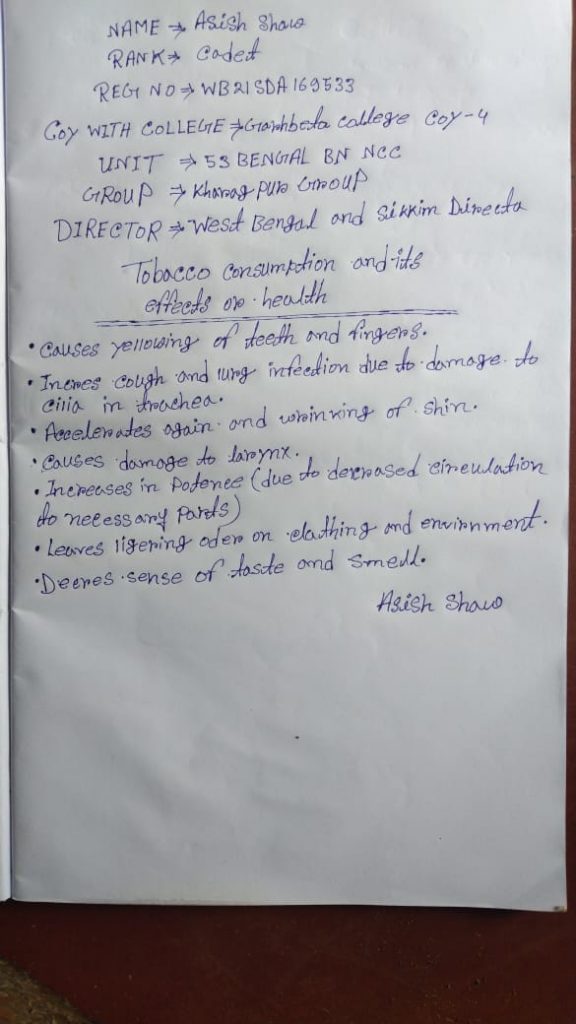 NAME → Asish Shaw
RANK → Cadet
REG NO → WB21SDA169533
Coy WITH COLLEGE → Garhbeta college Coy-4
UNIT → 53 BENGAL BN NCC
GROUP → Kharagpur Group
DIRECTOR → West Bengal and Sikkim Directa
Tobacco consumption and its
effects on health
• Causes yellowing of teeth and fingers.
• Incres cough and lung infection due to damage to
cilia in trachea.
• Accelerates again and wrinking of shin.
• Causes damage to larynx.
• Increases in Potence (due to decrased circulation
to necessany Parts)
• Leaves ligering oder on clathing and envirnment.
• Decres sense of taste and smell.
Asish Shaw